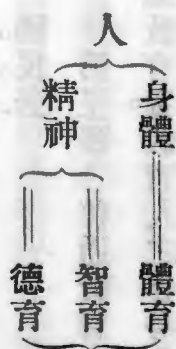 人
身體
精神
體育
智育
德育